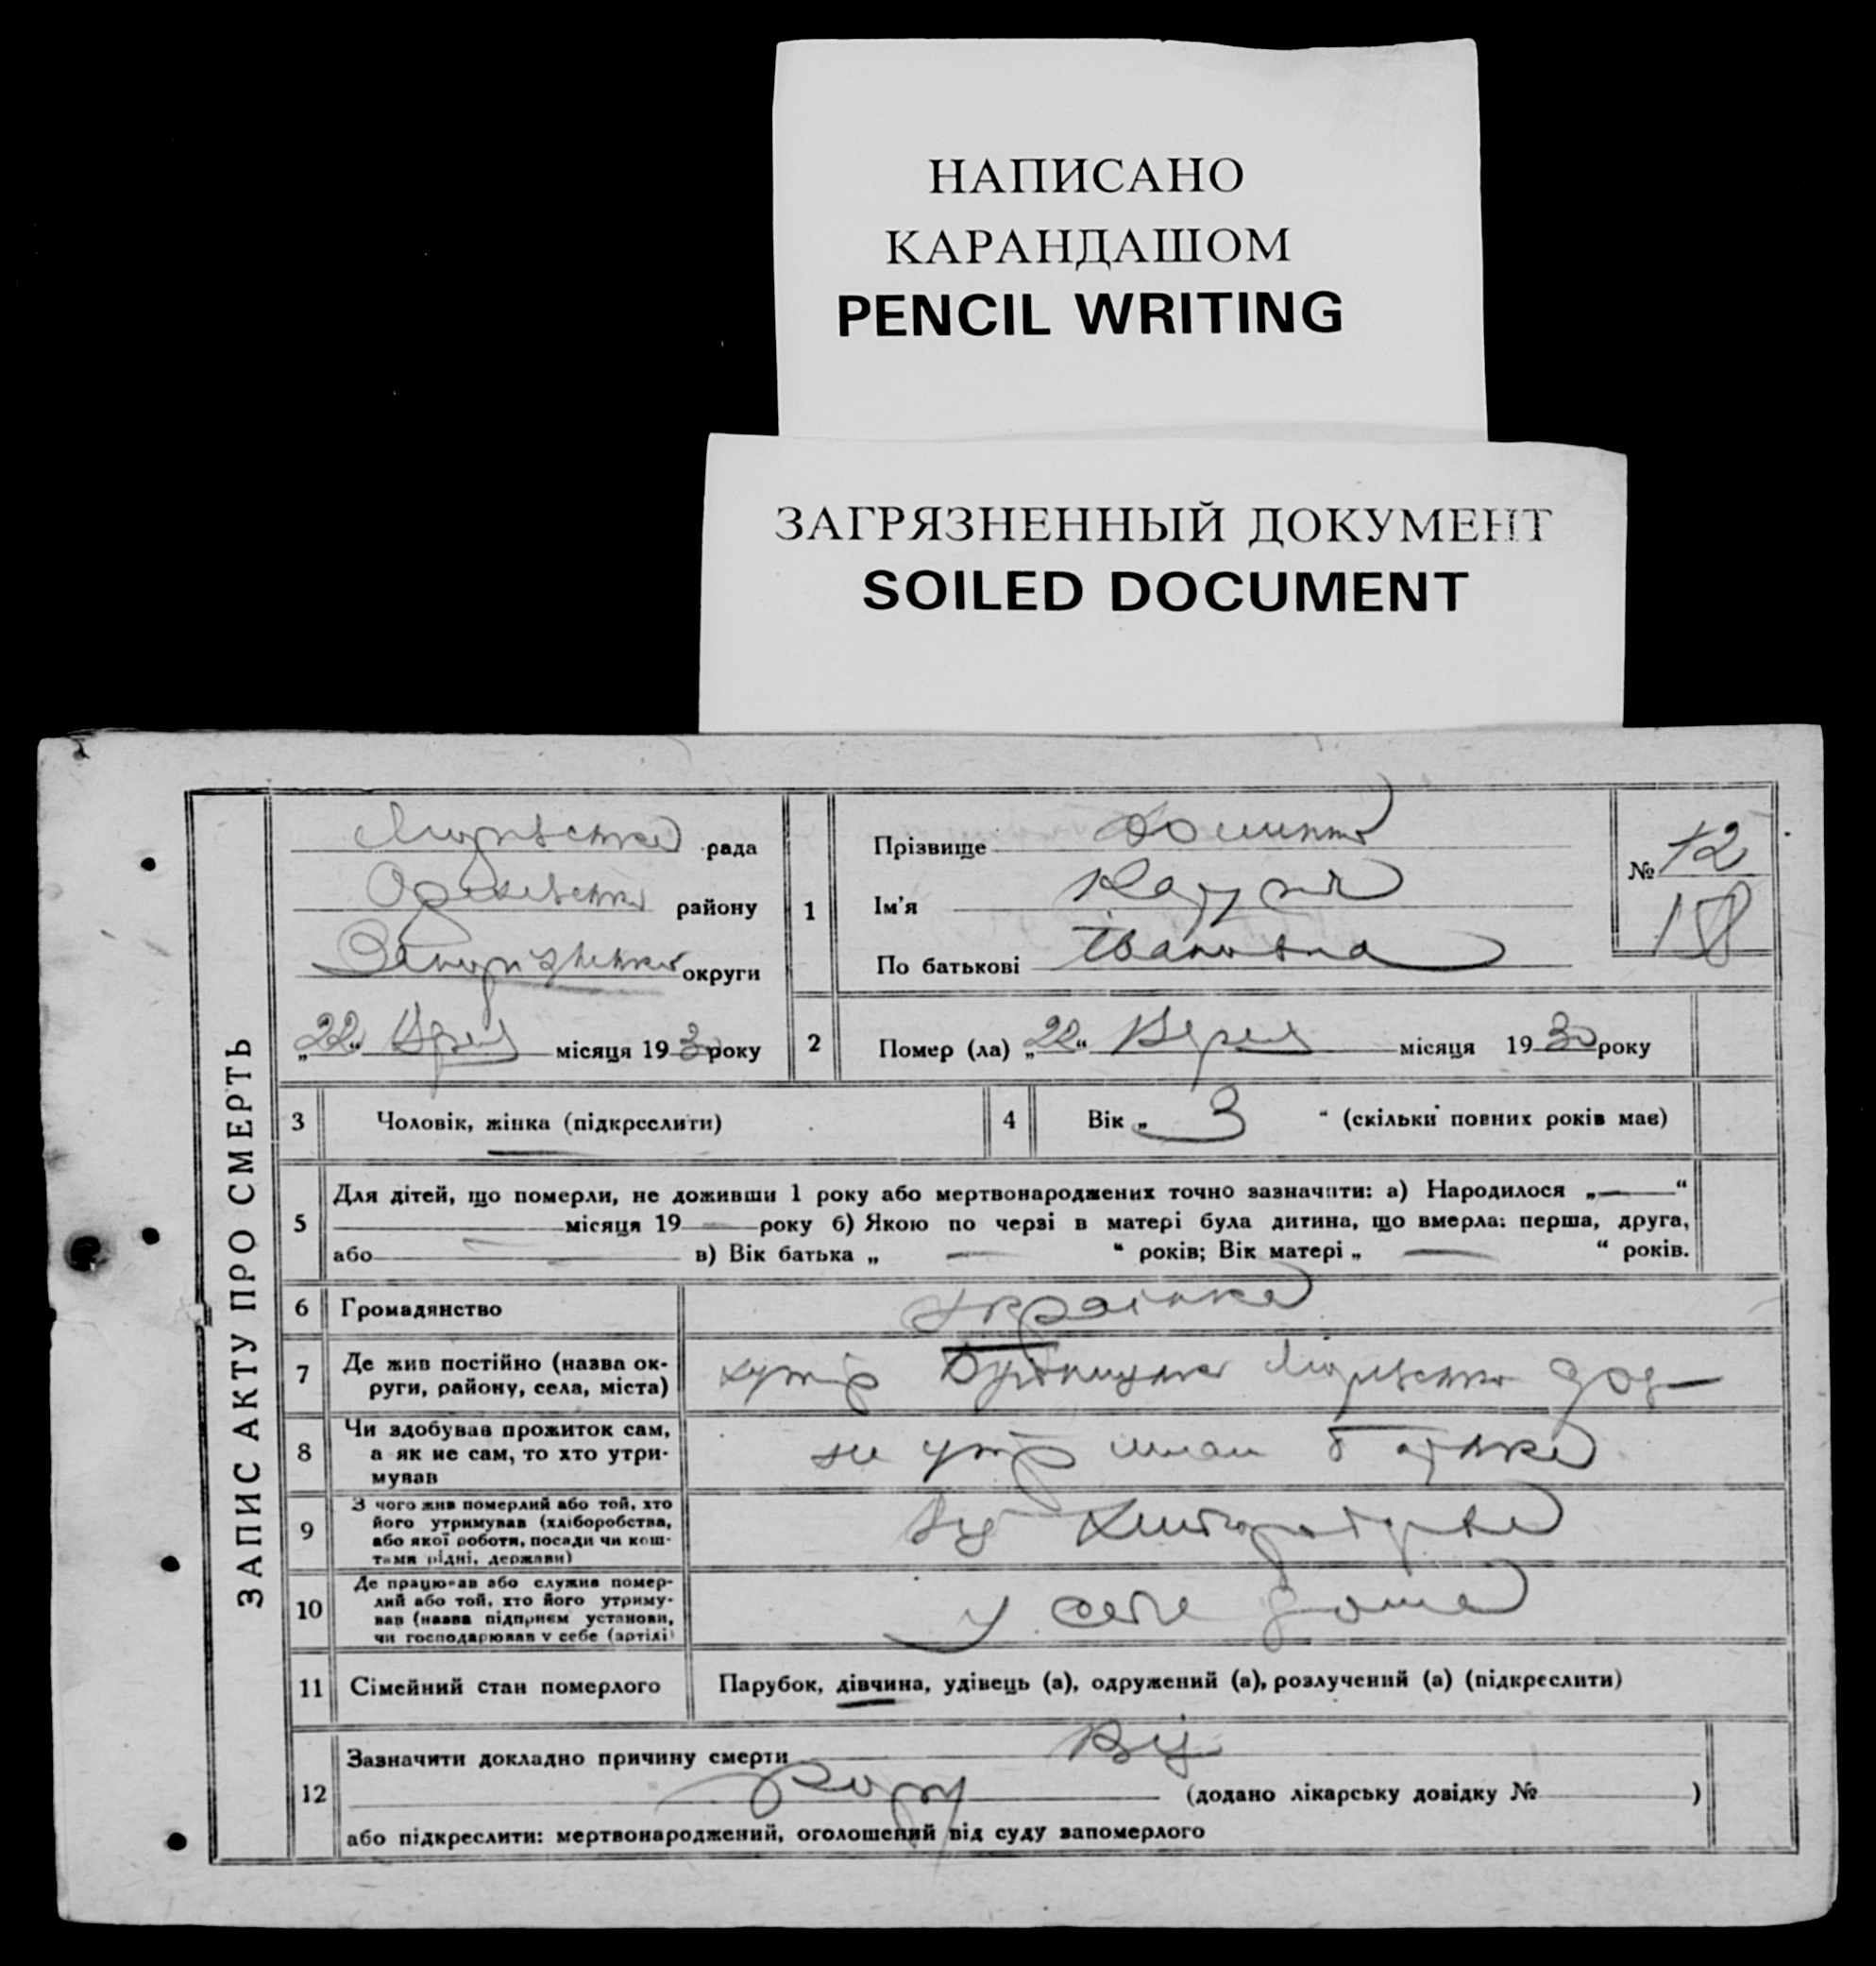 НАПИСАНО
КАРАНДАШОМ
PENCIL WRITING
ЗАГРЯЗНЕННЫЙ ДОКУМЕНТ
SOILED DOCUMENT
ЗАПИС АКТУ ПРО СМЕРТЬ
рада
району
округи
„22“ місяця 1930 року
1
Прізвище
Ім'я
По батькові Івановна
№ 12
18
2
Помер (ла) „22“ місяця 1930 року
3
Чоловік, жінка (підкреслити)
4
Вік „ 3 “ (скільки повних років має)
5
Для дітей, що померли, не доживши 1 року або мертвонароджених точно зазначити: а) Народилося „—“
місяця 19— року б) Якою по черзі в матері була дитина, що вмерла: перша, друга,
або — в) Вік батька „ — “ років; Вік матері „ — “ років.
6
Громадянство
Українка
7
Де жив постійно (назва ок-
руги, району, села, міста)
хутір
8
Чи здобував прожиток сам,
а як не сам, то хто утри-
мував
батька
9
З чого жив померлий або той, хто
його утримував (хліборобства,
або якої роботи, посади чи кош-
тами рідні, держави)
10
Де працював або служив помер-
лий або той, хто його утриму-
вав (назва підприєм установи,
чи господарював у себе (артілі)
у себе дома
11
Сімейний стан померлого
Парубок, дівчина, удівець (а), одружений (а), розлучений (а) (підкреслити)
12
Зазначити докладно причину смерти Від
кору (додано лікарську довідку № )
або підкреслити: мертвонароджений, оголошений від суду запомерлого